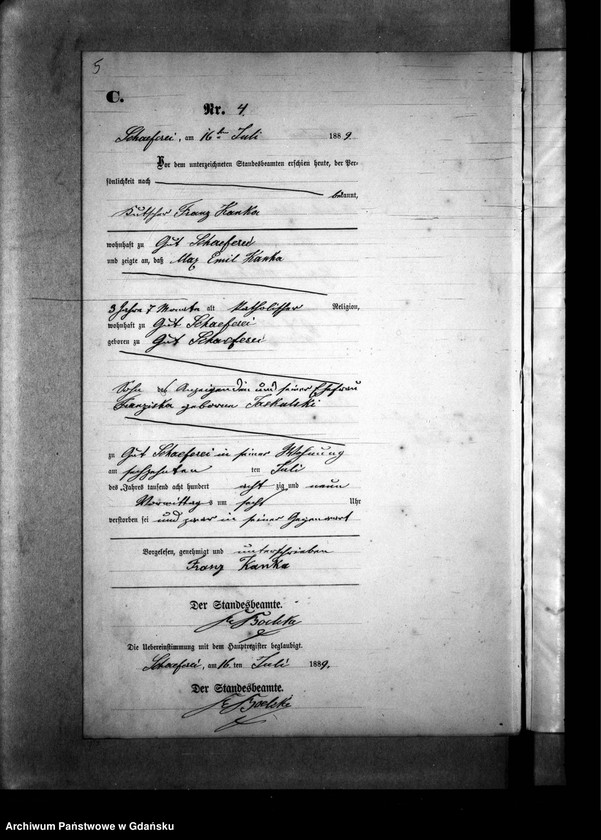 5
C.
Nr. 4
Schaeferei, am 16ten Juli 1889
Vor dem unterzeichneten Standesbeamten erschien heute, der Per-
sönlichkeit nach
bekannt,
Kutscher Franz Kanka
wohnhaft zu Gut Schaeferei
und zeigte an, daß Max Emil Kanka
3 Jahre 7 Monate alt katholischer Religion,
wohnhaft zu Gut Schaeferei
geboren zu Gut Schaeferei
Sohn des Anzeigenden und seiner Ehefrau
Franziska geborene
zu Gut Schaeferei in seiner Wohnung
am sechzehnten ten Juli
des Jahres tausend acht hundert acht zig und neun
Vormittags um sechs Uhr
verstorben sei und zwar in seiner Gegenwart
Vorgelesen, genehmigt und unterschrieben
Franz Kanka
Der Standesbeamte.
Die Uebereinstimmung mit dem Hauptregister beglaubigt.
Schaeferei, am 16. ten Juli 1889.
Der Standesbeamte.
Archiwum Państwowe w Gdańsku